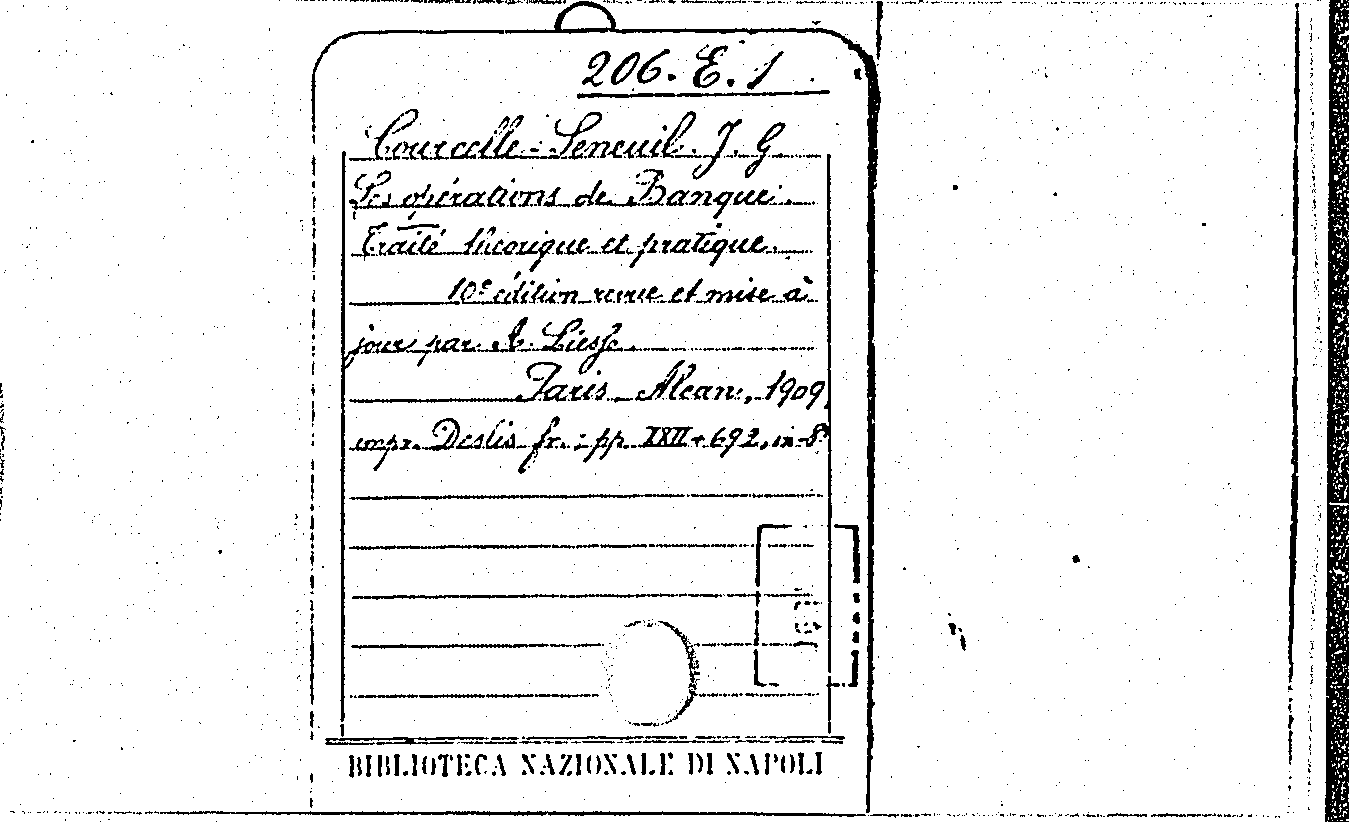 206. E. 1
Courcelle-Seneuil. J. G.
Les opérations de Banque.
Traité théorique et pratique.
10e édition revue et mise à
jour par A. Liesse.
Paris. Alcan, 1909,
impr. Deslis fr. : pp. XXII+692, in-8°
BIBLIOTECA NAZIONALE DI NAPOLI